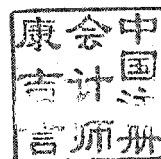 中国注册
会计师
康吉言